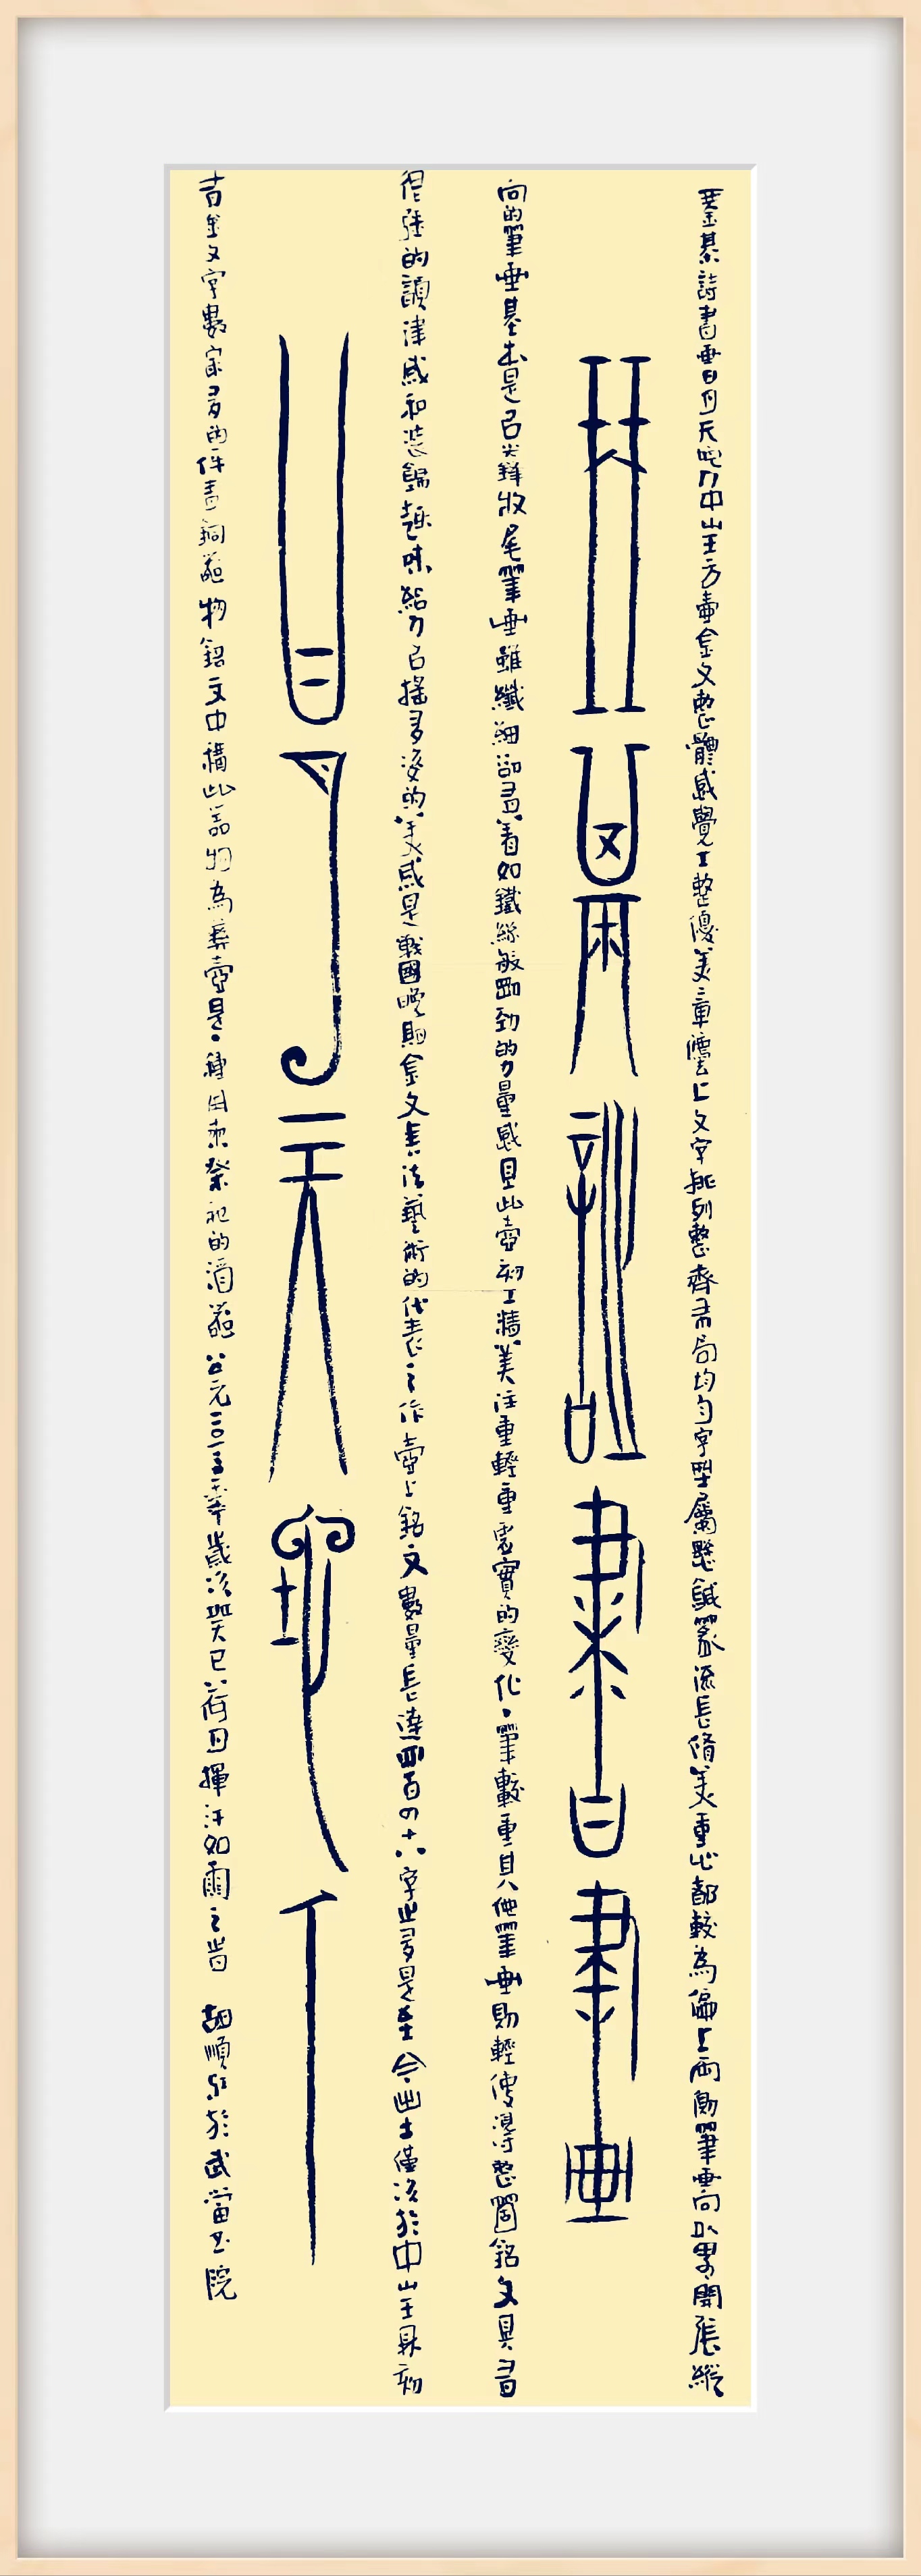 琹棊詩書畫日月天地人中山王方壺金文整體感覺工整優美章灋上文字排列整齊布局均勻字型屬懸鍼篆流長脩美重心都較為偏上兩側筆畫向開張縱
琹棊詩書畫
向的筆畫基本是以尖鋒收尾筆畫雖纖細卻着如鐵絲般剛勁的力量感且此壺刻工精美注重輕重虛實的變化一筆較重其他筆畫則輕使得整篇銘文具有
很强的韻律感和裝飾趣味給人以搖多姿的美感是戰國晚期金文書法藝術的代表之作壺上銘文數量長達四百四十八字是至今出土僅次於中山王鼎刻
日月天地人
有金文字數最多的一件青銅器物銘文中稱此器物為彝壺是一種用來祭祀的酒器公元二〇一三年歲次癸巳荷月揮汗如雨之時 胡順於武當書院